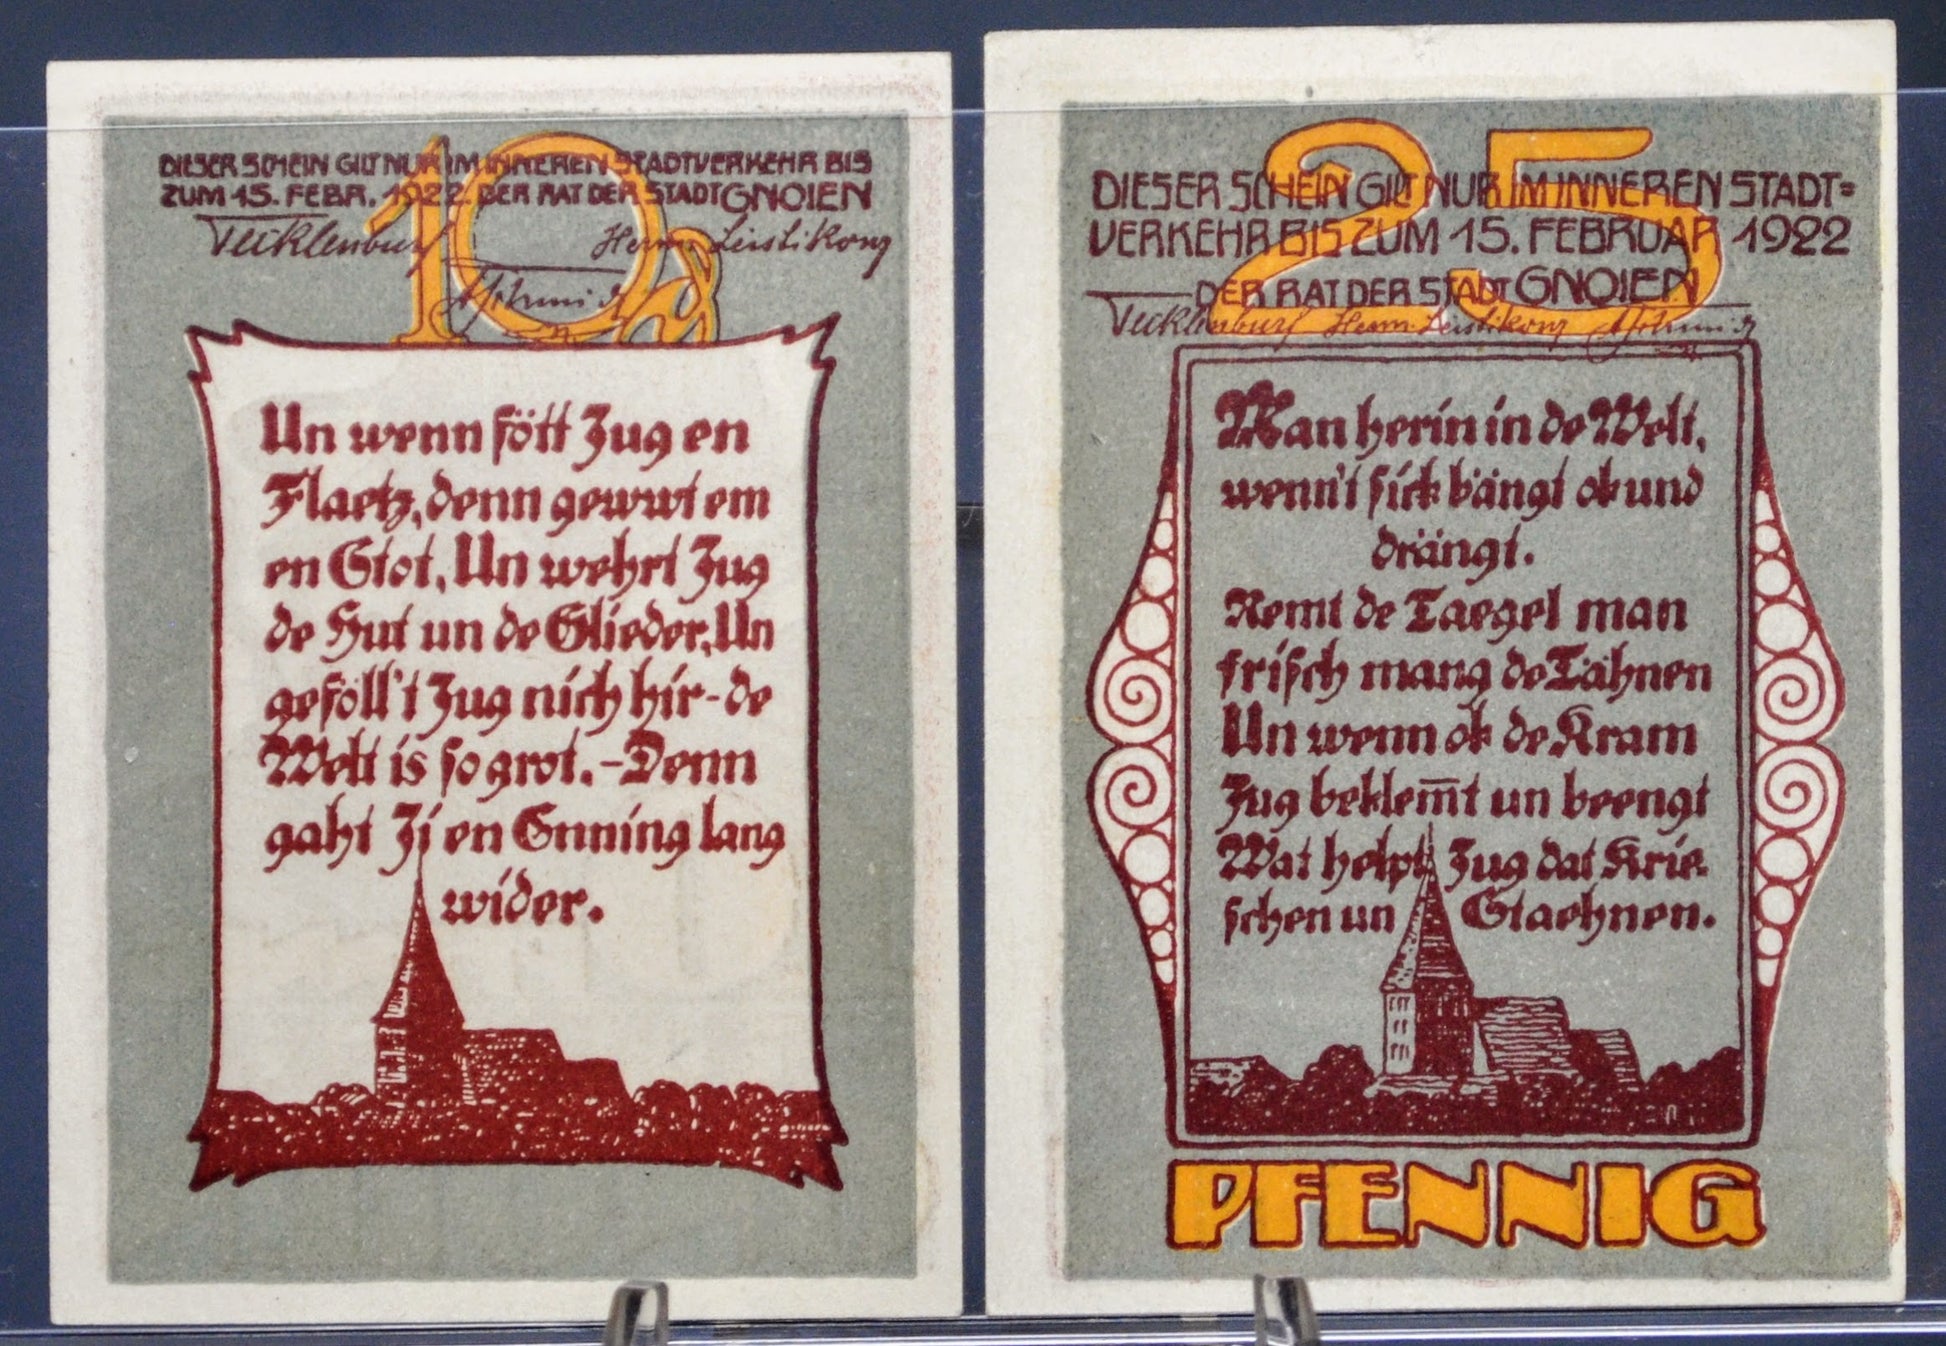 DIESER SCHEIN GILT NUR IM INNEREN STADTVERKEHR BIS
ZUM 15. FEBR. 1922. DER RAT DER STADT GNOIEN
Tecklenburg Herm. Leistikow
ASchmidt
10 ₰
Un wenn fött Jug en
Flaetz, denn gewwt em
en Stot, Un wehrt Jug
de Hut un de Glieder, Un
geföll't Jug nich hir-de
Welt is so grot. - Denn
gaht Ji en Enning lang
wider.
25
DIESER SCHEIN GILT NUR IM INNEREN STADT=
VERKEHR BIS ZUM 15. FEBRUAR 1922
DER RAT DER STADT GNOIEN
Tecklenburg Herm. Leistikow ASchmidt
Man herin in de Welt,
wenn't sick bängt ok und
drängt.
Nemt de Taegel man
frisch mang de Tähnen
Un wenn ok de Kram
Jug beklem̅t un beengt
Wat helpt Jug dat Krie-
schen un Staehnen.
PFENNIG